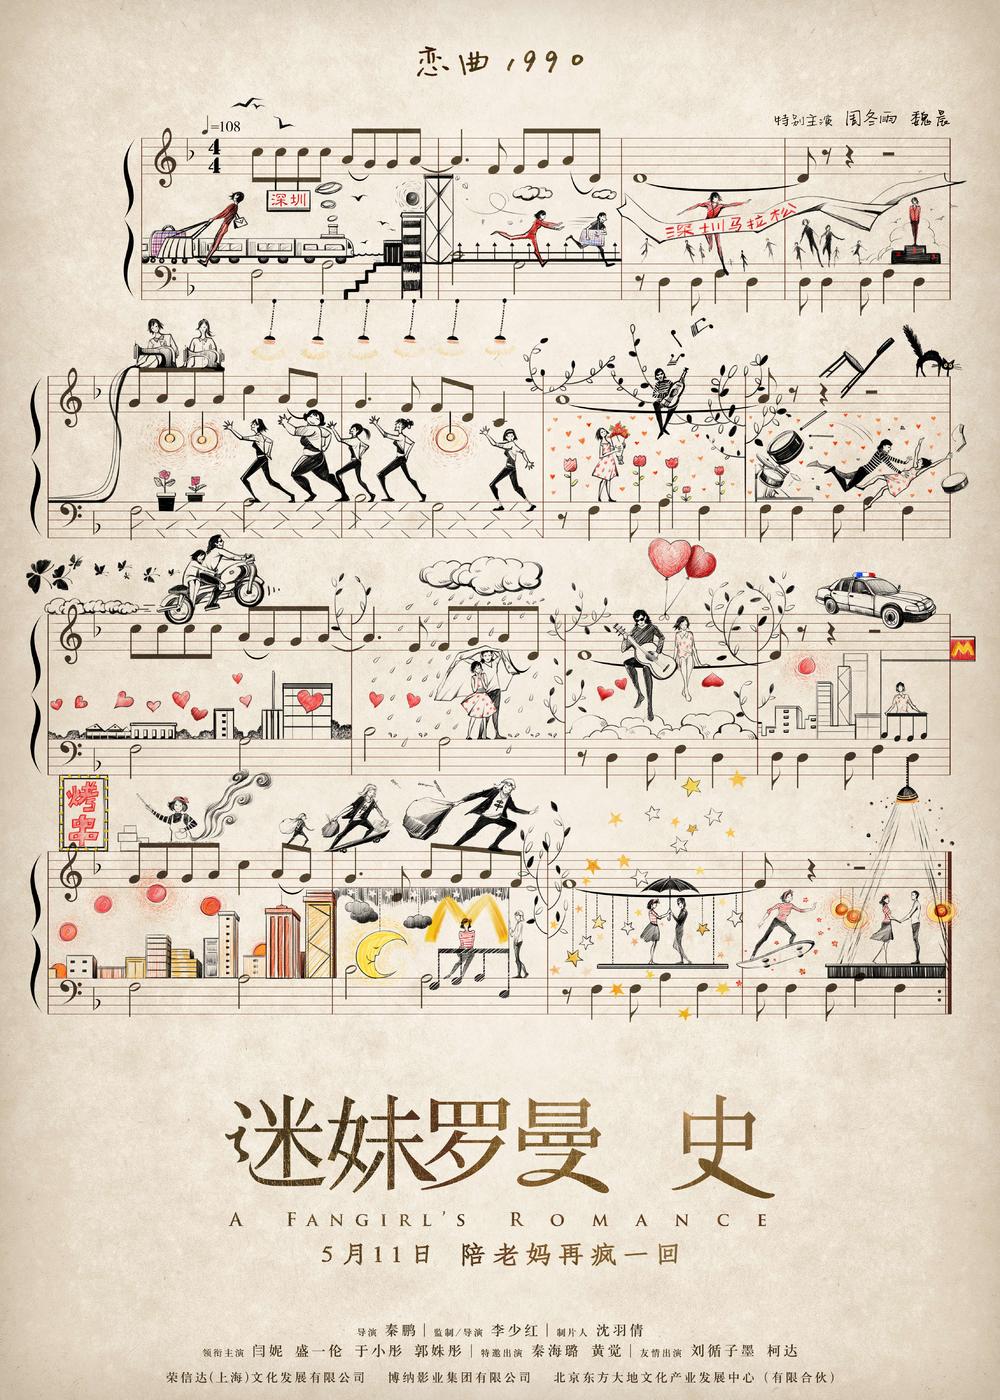 恋曲1990
特别主演 周冬雨 魏晨
=108
4
4
深圳
深圳马拉松
M
烤串
迷妹罗曼 史
A FANGIRL'S ROMANCE
5月11日 陪老妈再疯一回
导演 秦鹏 | 监制/导演 李少红 | 制片人 沈羽倩
领衔主演 闫妮 盛一伦 于小彤 郭姝彤 | 特邀出演 秦海璐 黄觉 | 友情出演 刘循子墨 柯达
荣信达(上海)文化发展有限公司 博纳影业集团有限公司 北京东方大地文化产业发展中心（有限合伙）